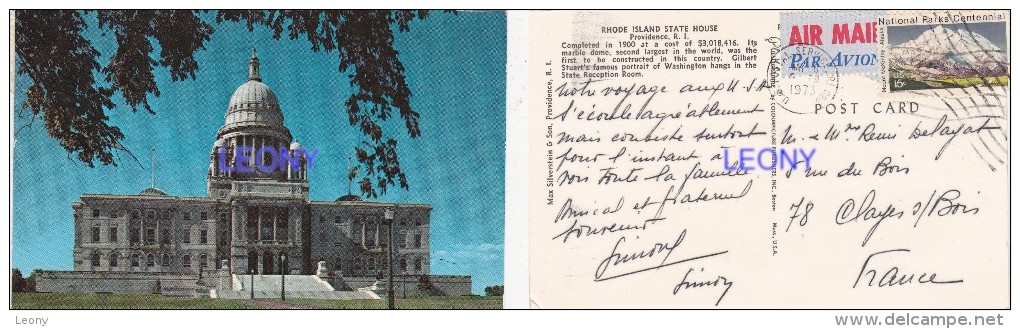 LEONY
Leony
RHODE ISLAND STATE HOUSE
Providence, R. I.
Completed in 1900 at a cost of $3,018,416. Its
marble dome, second largest in the world, was the
first to be constructed in this country. Gilbert
Stuart's famous portrait of Washington hangs in the
State Reception Room.
Max Silverstein & Son, Providence, R. I.
notre voyage aux U.S.A
s'écoule agréablement
mais consiste surtout
pour l'instant à
voir toute la famille
Amical et fraternel
souvenir
LEONY
AIR MAIL
PAR AVION
National Parks Centennial
15c
1973
POST CARD
M. & Mme Remi Delayat
rue du Bois
78 Clayes s/ Bois
France
LEONY
Leony
www.delcampe.net